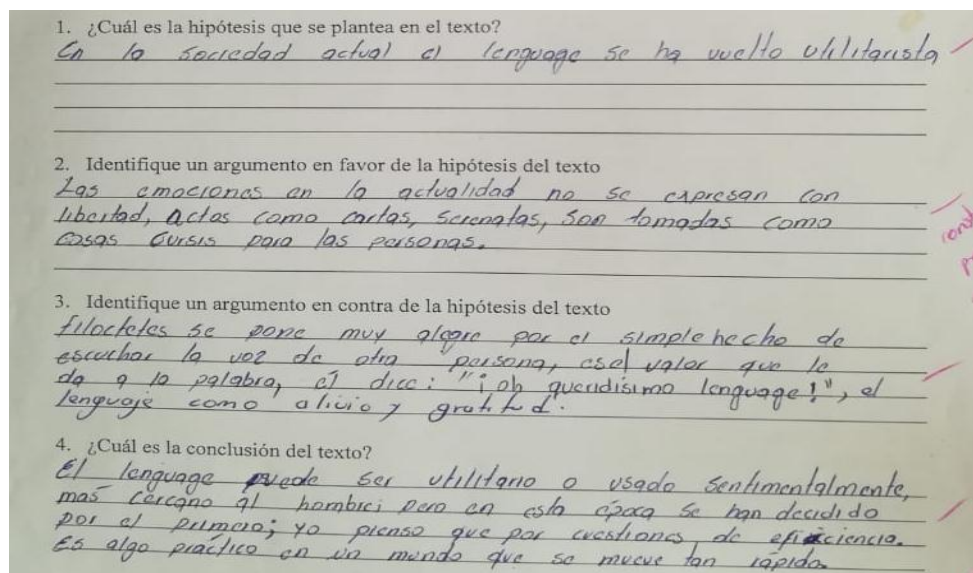 1. ¿Cuál es la hipótesis que se plantea en el texto?
En la sociedad actual el lenguage se ha vuelto utilitarista
2. Identifique un argumento en favor de la hipótesis del texto
Las emociones en la actualidad no se expresan con
libertad, actos como cartas, serenatas, son tomadas como
cosas cursis para las personas.
3. Identifique un argumento en contra de la hipótesis del texto
filoctetes se pone muy alegre por el simple hecho de
escuchar la voz de otra persona, es el valor que le
da a la palabra, el dice: "¡oh queridisimo lenguage!", el
lenguaje como alivio y gratitud.
4. ¿Cuál es la conclusión del texto?
El lenguage puede ser utilitario o usado sentimentalmente,
mas cercano al hombre; pero en esta época se han decidido
por el primero; yo pienso que por cuestiones de eficiencia.
Es algo práctico en un mundo que se mueve tan rápido.